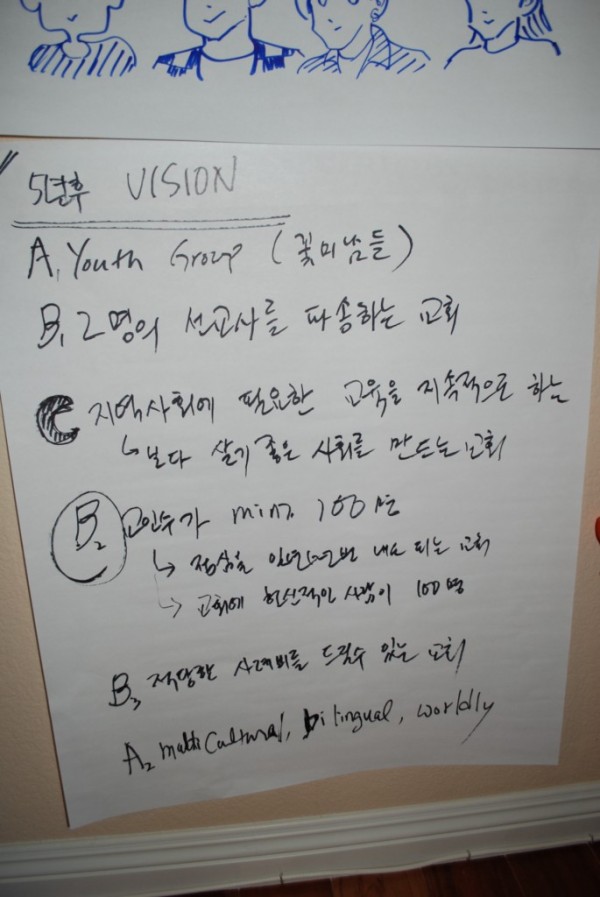 5년후 VISION
A1 Youth Group (꽃미남들)
B1 2명의 선교사를 파송하는 교회
C 지역사회에 필요한 교육을 지속적으로 하는
↳ 보다 살기 좋은 사회를 만드는 교회
B2 교인수가 min. 100명
↳ 점심을 일년에 한번 내도 되는 교회
↳ 교회에 헌신적인 사람이 100명
B3 적당한 사례비를 드릴수 있는 교회
A2 multi cultural, bilingual, worldly